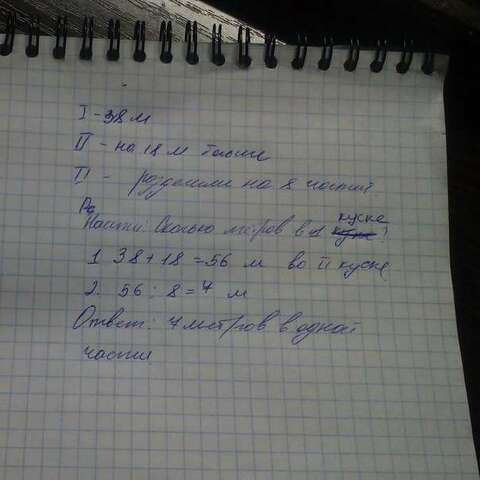 I - 38 м
II - на 18 м
II - разделили на 8 частей
Найти: Сколько метров в 1 куске?
1. 38 + 18 = 56 м во II куске
2. 56 : 8 = 7 м
Ответ: 7 метров в одной
части